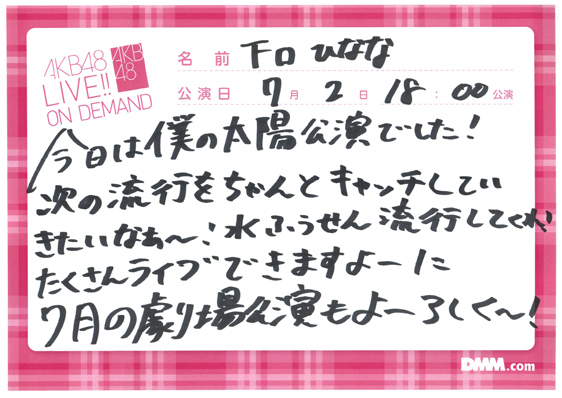 AKB48
LIVE!!
ON DEMAND
AKB
48
名 前 下口 ひなな
公演日 7月 2日 18:00公演
今日は僕の太陽公演でした!
次の流行をちゃんとキャッチしてい
きたいなぁ〜!水ふうせん流行してくれ!
たくさんライブできますよーに
7月の劇場公演もよーろしく〜!
DMM.com